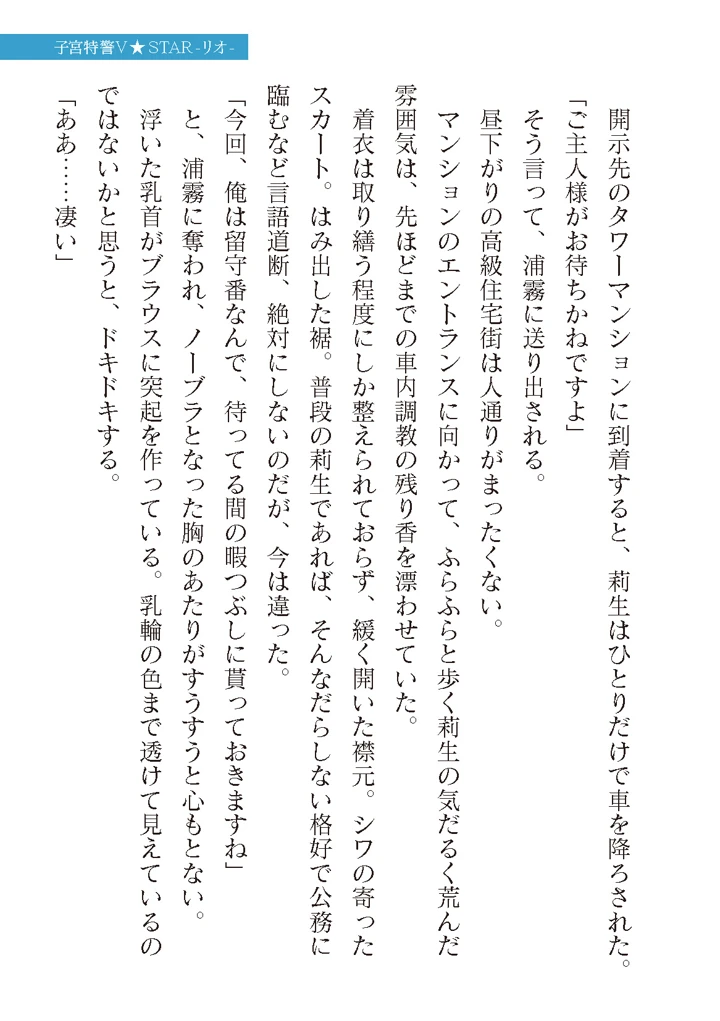 子宮特警V★STAR-リオ-
開示先のタワーマンションに到着すると、莉生はひとりだけで車を降ろされた。
「ご主人様がお待ちかねですよ」
そう言って、浦霧に送り出される。
昼下がりの高級住宅街は人通りがまったくない。
マンションのエントランスに向かって、ふらふらと歩く莉生の気だるく荒んだ
雰囲気は、先ほどまでの車内調教の残り香を漂わせていた。
着衣は取り繕う程度にしか整えられておらず、緩く開いた襟元。シワの寄った
スカート。はみ出した裾。普段の莉生であれば、そんなだらしない格好で公務に
臨むなど言語道断、絶対にしないのだが、今は違った。
「今回、俺は留守番なんで、待ってる間の暇つぶしに貰っておきますね」
と、浦霧に奪われ、ノーブラとなった胸のあたりがすうすうと心もとない。
浮いた乳首がブラウスに突起を作っている。乳輪の色まで透けて見えているの
ではないかと思うと、ドキドキする。
「ああ……凄い」